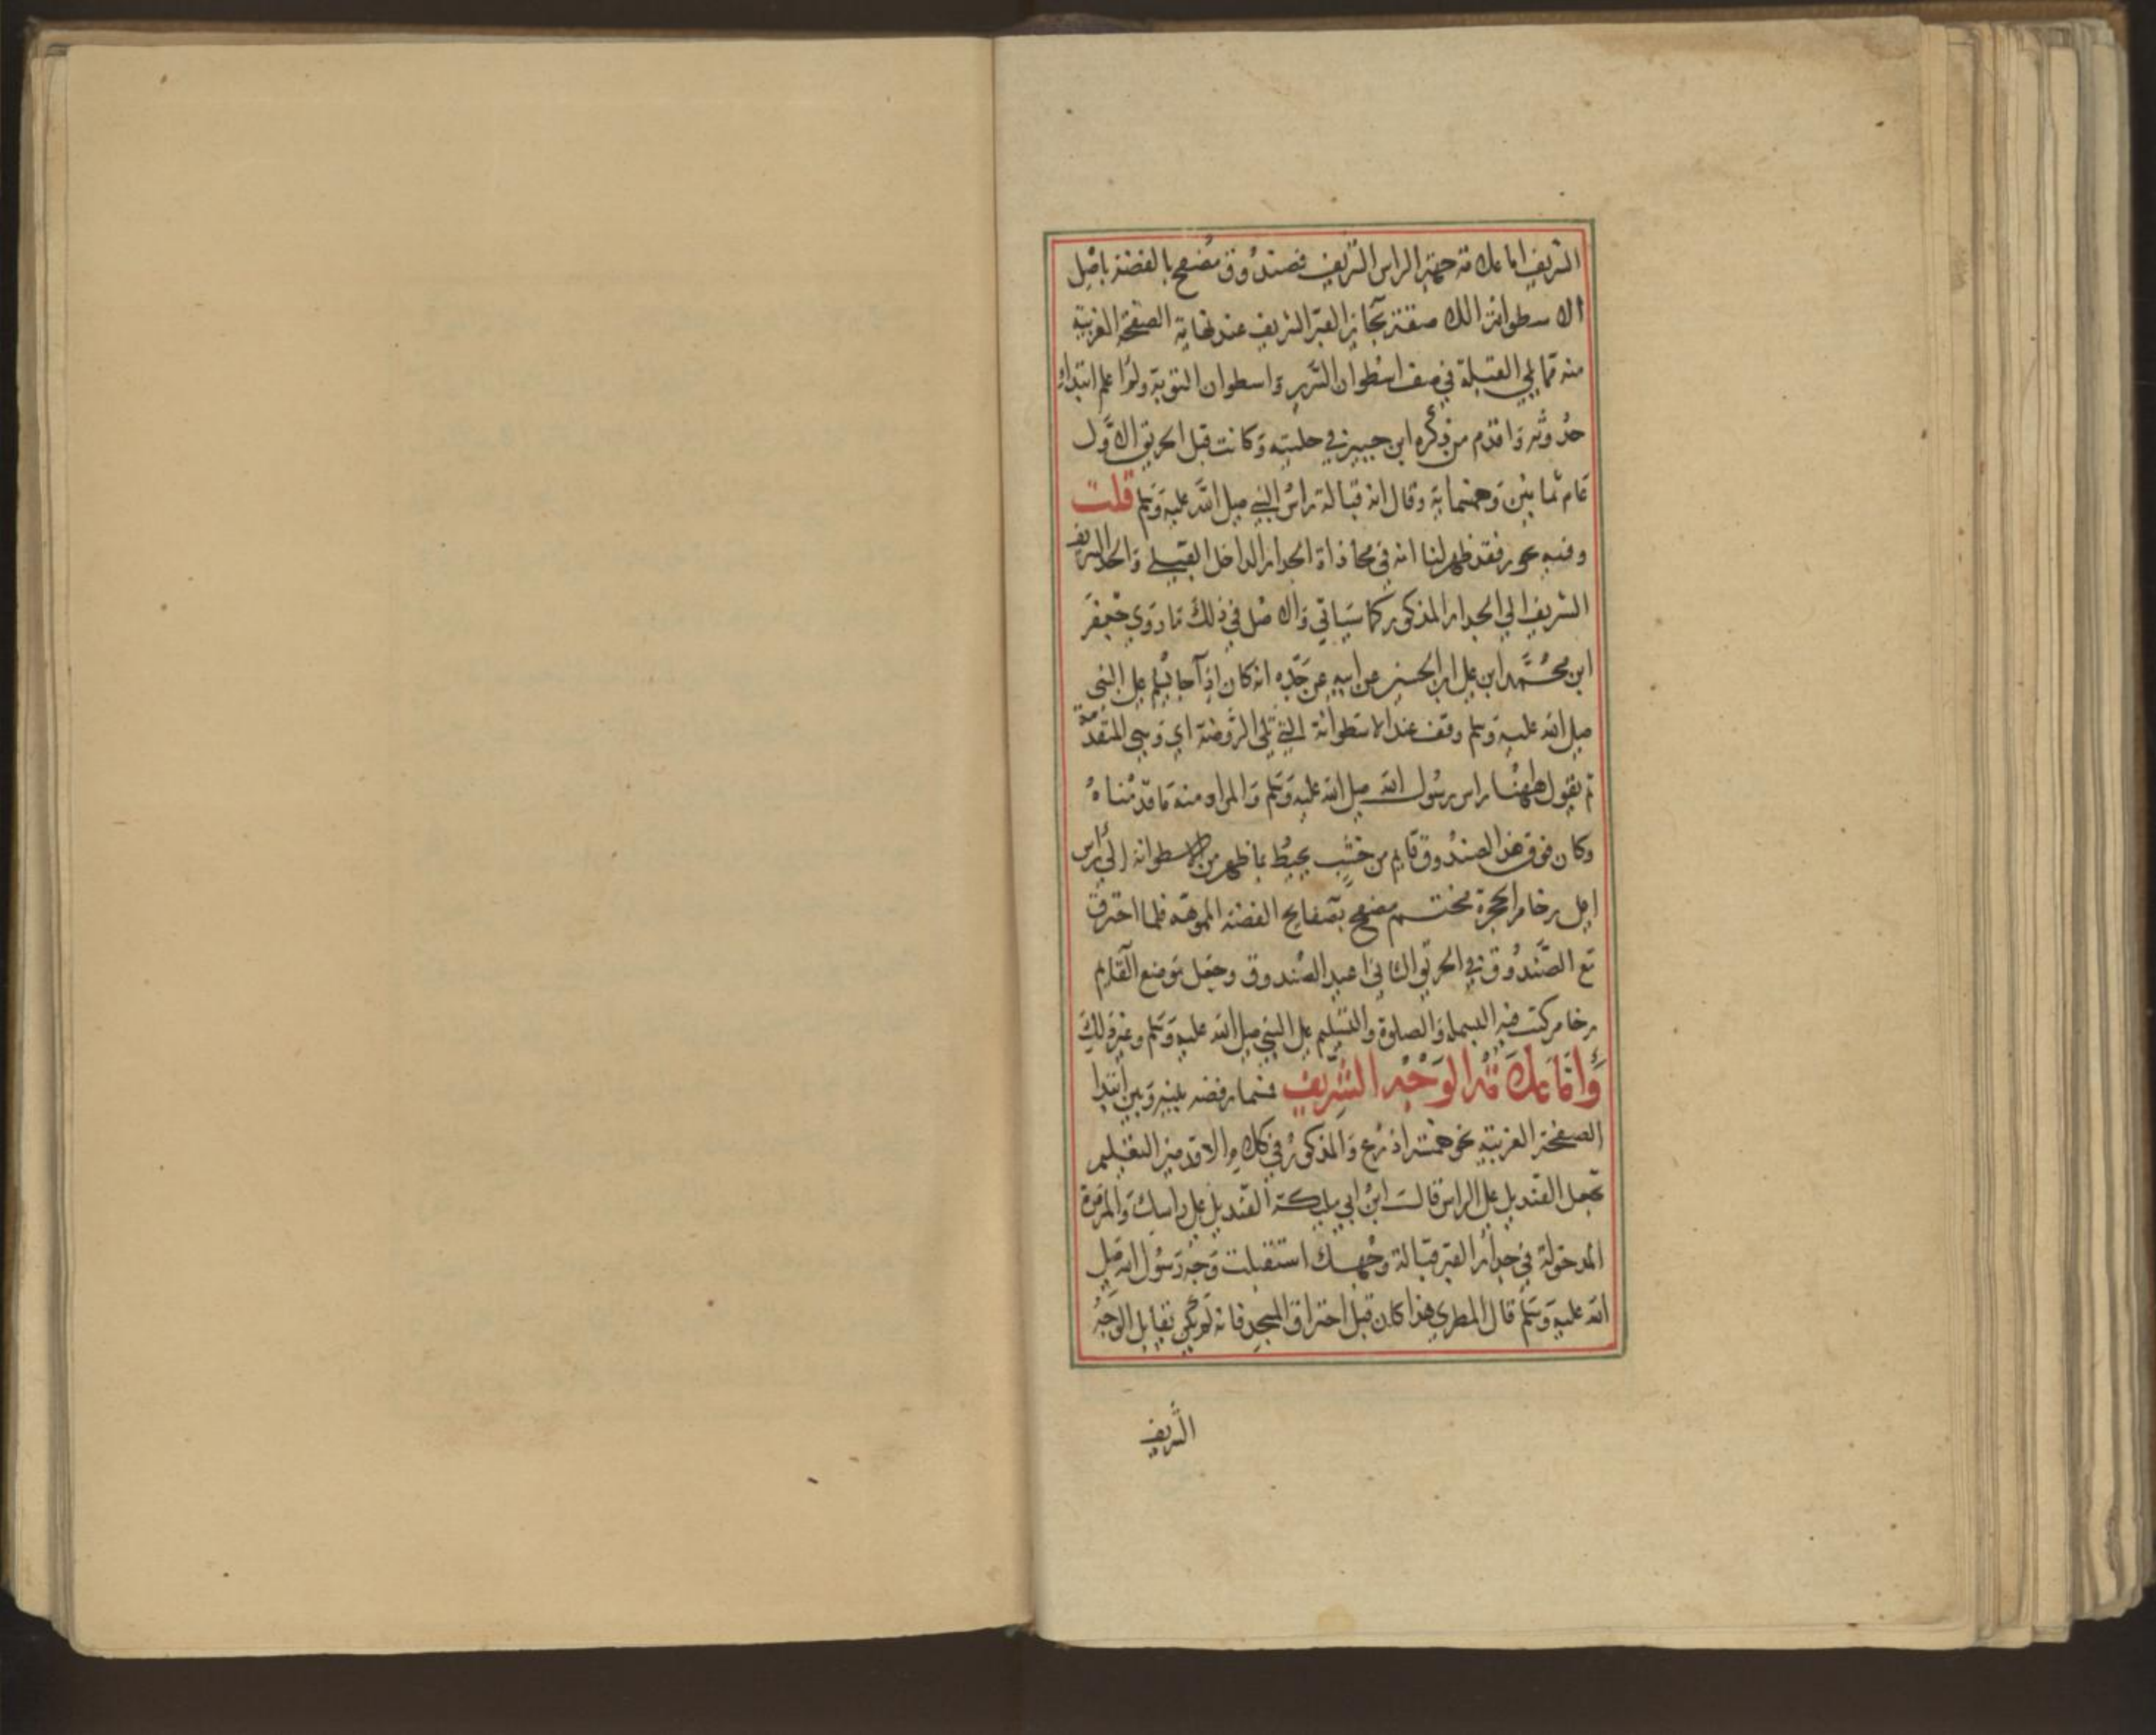 الشريف اما علامة جهة الراس الشريف فصندوق مصفح بالفضة باصل
الاسطوانة اللاصقة بجانب القبر الشريف عند نهاية الصفحة الغربية
منه مما يلي القبلة في صف اسطوان السرير واسطوان التوبة ولم اعلم ابتداء
حدوثه واقدم من ذكره ابن جبير في حليته وكانت قبل الحريق الاول
عام ثمانين وخمسماية وقال انه قبالة راس النبي صلى الله عليه وسلم قلت
وفيه تجوز فقد ظهر لنا انه في محاذاة الجدار الداخل القبلي والحد الشريف
الشريف الي الجدار المذكور كما سياتي والاصل في ذلك ما روي جعفر
ابن محمد ابن علي ابن الحسين عن ابيه عن جده انه كان اذا جا يسلم على النبي
صلى الله عليه وسلم وقف عند الاسطوانة التي تلي الروضة اي وهي المتقدمة
ثم يقول ههنا راس رسول الله صلى الله عليه وسلم والمراد منه ما قدمناه
وكان فوق هذا الصندوق قايم من خشب يحيط بما ظهر من الاسطوانة الي راس
اصل رخام الحجرة مختم مصفح بصفايح الفضة المموهه فلما احترق
مع الصندوق في الحريق الثاني اعيد الصندوق وجعل موضع القايم
رخام كتب فيه البسملة والصلوة والتسليم على النبي صلى الله عليه وسلم وغير ذلك
واما علامة الوجه الشريف فسمار فضه بينه وبين ابتدا
الصفحة الغربية نحو خمسة اذرع والمذكور في كلام الاقدمين التعليم
بجعل القنديل على الراس قالت ابن ابي مليكة القنديل على راسك والمرمرة
المدخولة في جدار القبر قبالة وجهك استقبلت وجه رسول الله صلى
الله عليه وسلم قال المطري هذا كان قبل احتراق المسجد فانه لم يكن يقابل الوجه
الشريف